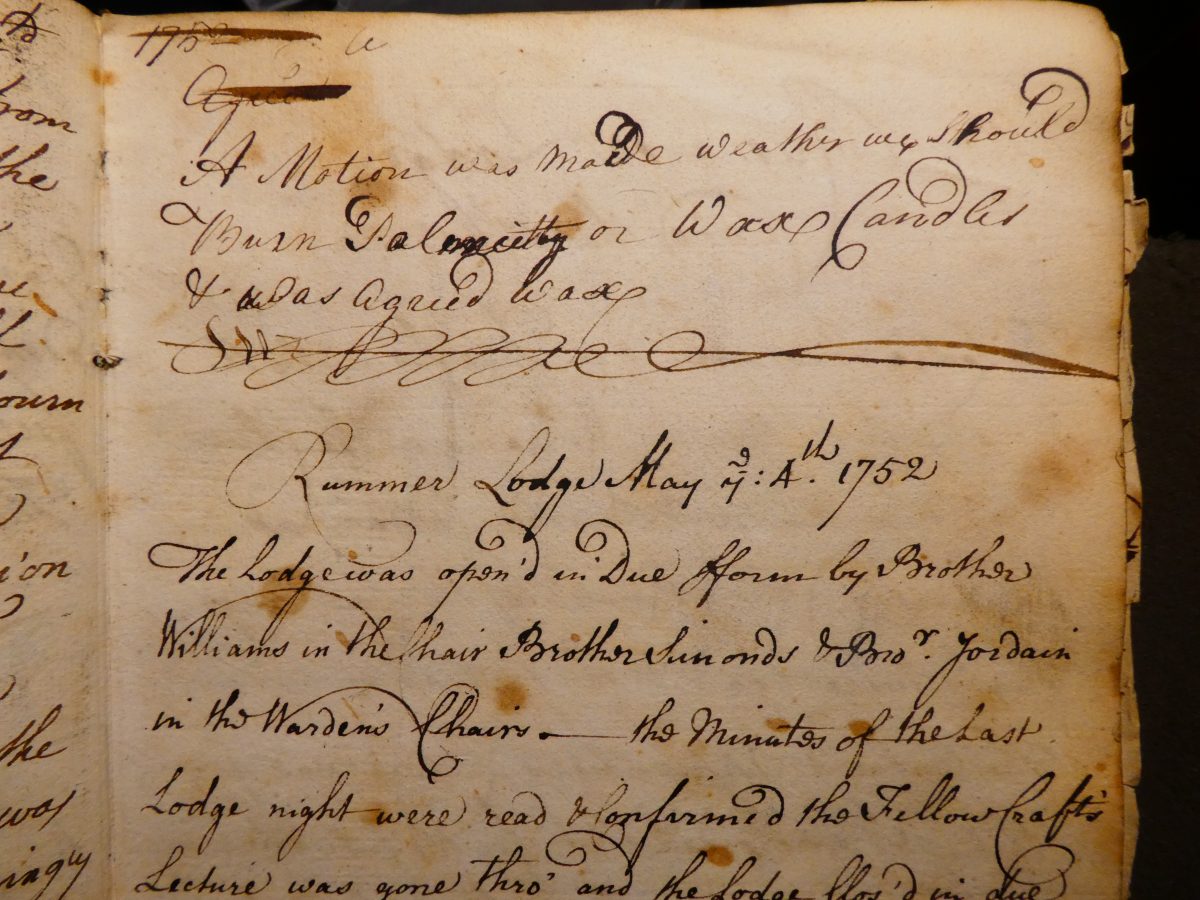 rom
the
ourn
ion
the
was
ing
1752
Agreed
A Motion was made weather we Should
Burn or Wax Candles
& was Agreed Wax
Rummer Lodge May ye: 4th. 1752
The Lodge was open'd in Due fform by Brother
Williams in the Chair Brother Simonds & Bror. Jordain
in the Warden's Chairs. — the Minutes of the Last
Lodge night were read & Confirmed the Fellow Craft's
Lecture was gone thro' and the Lodge Clos'd in due